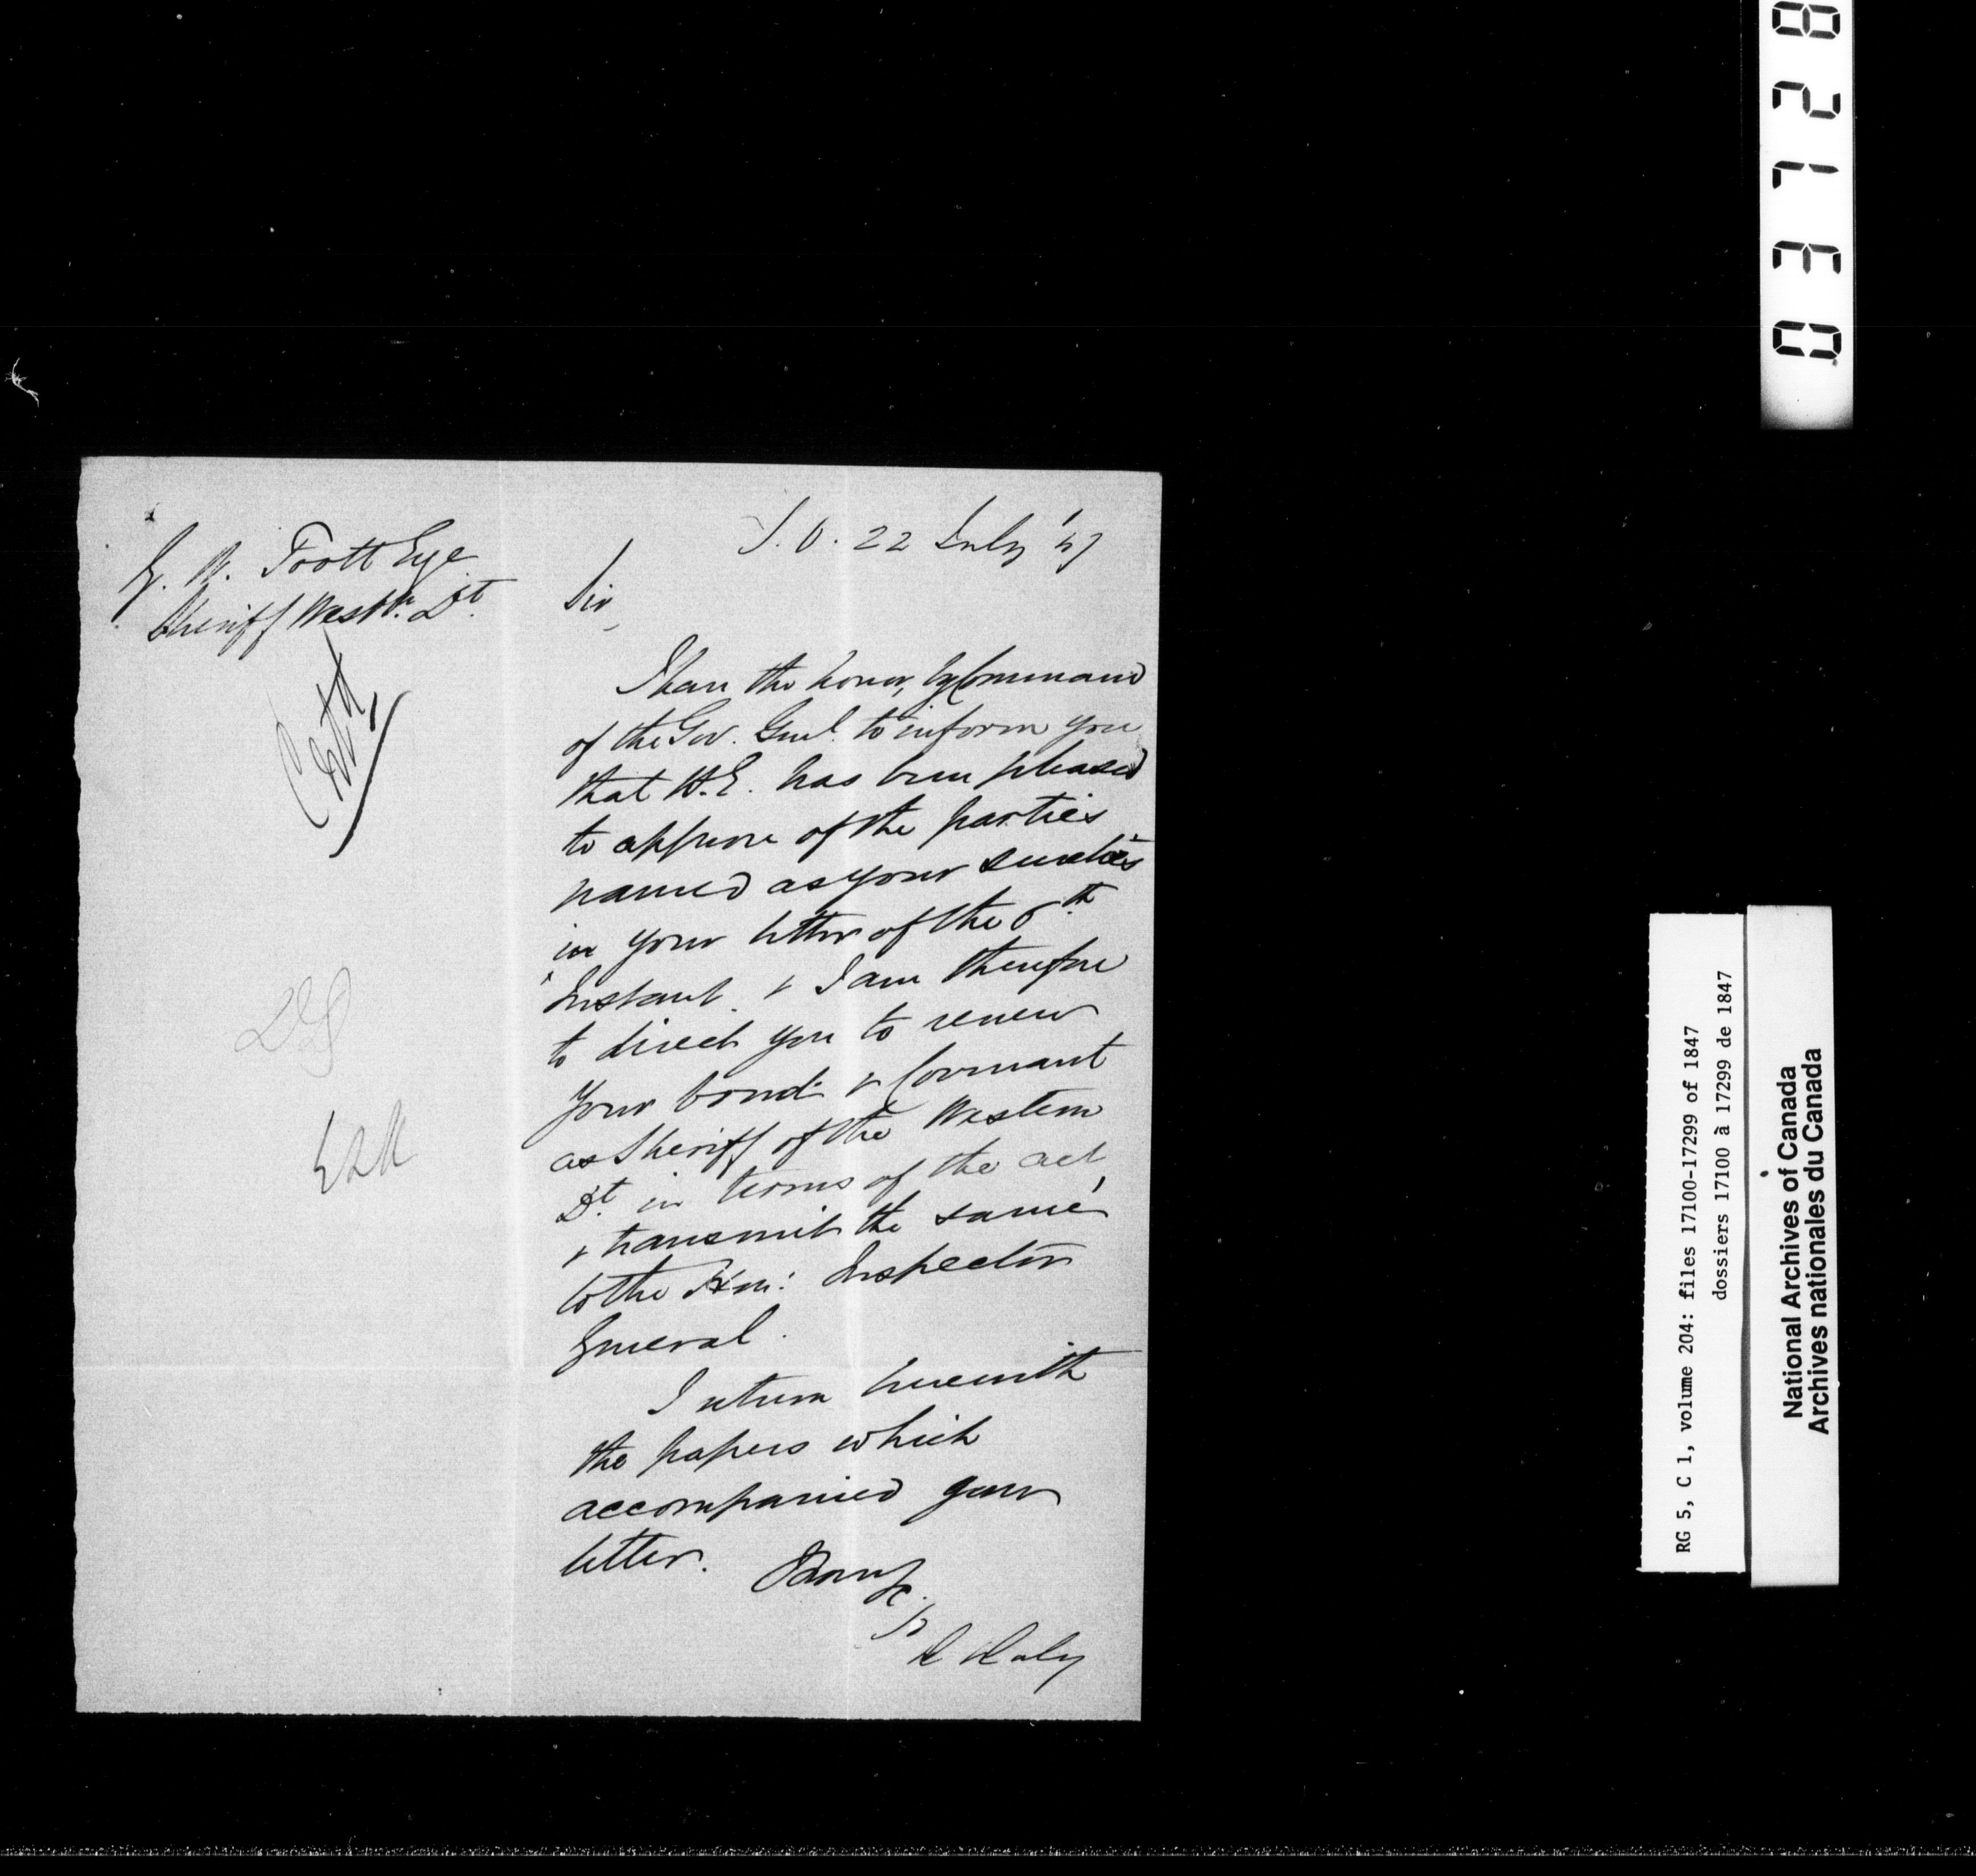 S. O. 22 July '47
G. W. Foott Esqe
Sheriff Westn. Dt.
Sir,
I have the honor, by Command
of the Gov. Genl. to inform you
that H.E. has been pleased
to approve of the parties
named as your sureties
in your letter of the 6th
Instant. & I am therefore
to direct you to renew
your bond & Covenant
as Sheriff of the Western
Dt. in terms of the act
& transmit the same
to the Hon: Inspector
General.
I return herewith
the papers which
accompanied your
letter.
D Daly
03728
RG 5, C 1, volume 204: files 17100-17299 of 1847
dossiers 17100 à 17299 de 1847
National Archives of Canada
Archives nationales du Canada